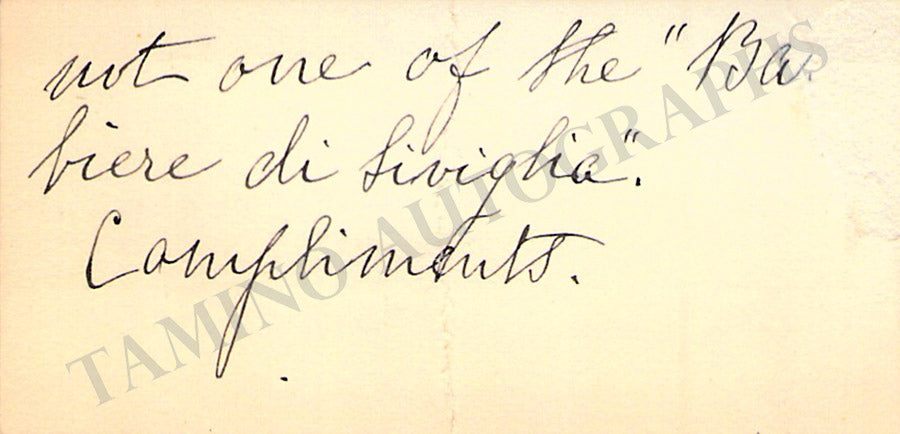 not one of the "Ba
biere di Siviglia".
Compliments.
TAMINO AUTOGRAPHS